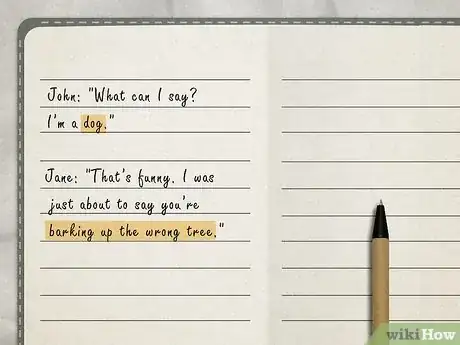 John: "What can I say?
I'm a dog."
Jane: "That's funny. I was
just about to say you're
barking up the wrong tree."
wikiHow